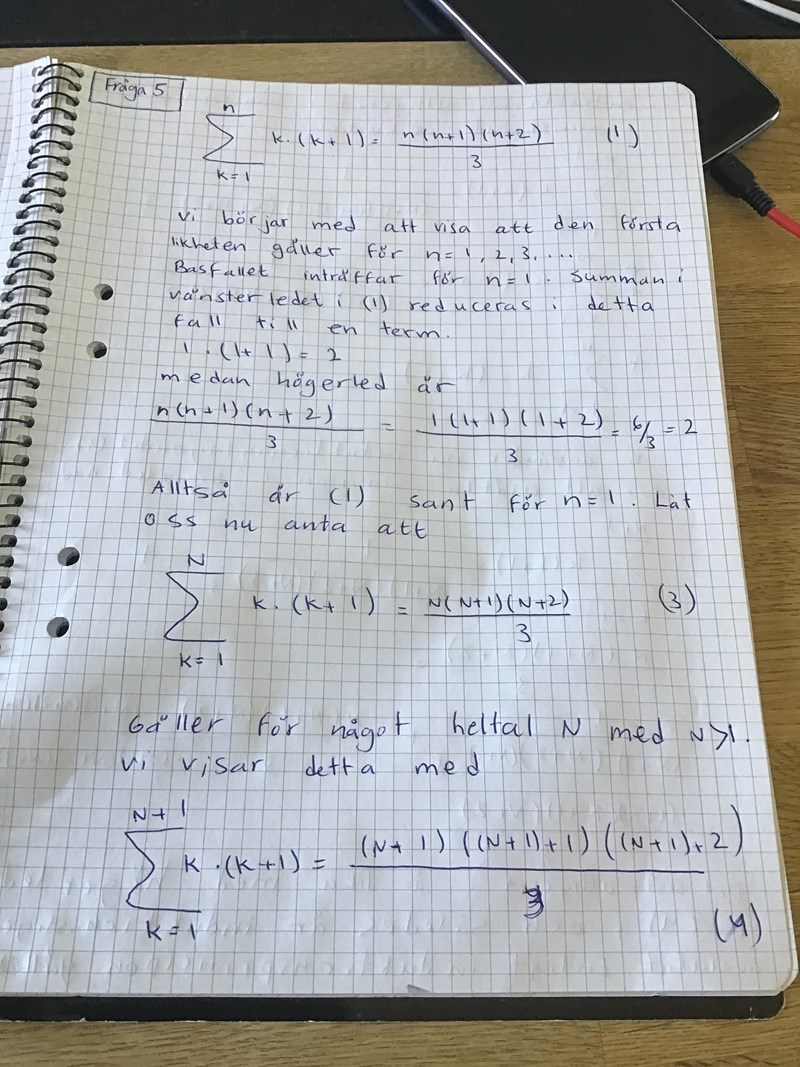 Fråga 5
n
∑ k·(k+1) = n(n+1)(n+2)/3 (1)
k=1
Vi börjar med att visa att den första
likheten gäller för n=1, 2, 3, ....
Basfallet inträffar för n=1. Summan i
vänster ledet i (1) reduceras i detta
fall till en term.
1·(1+1)=2
medan högerled är
n(n+1)(n+2)/3 = 1(1+1)(1+2)/3 = 6/3 = 2
Alltså är (1) sant för n=1. Låt
oss nu anta att
N
∑ k·(k+1) = N(N+1)(N+2)/3 (3)
k=1
Gäller för något heltal N med N>1.
Vi visar detta med
N+1
∑ k·(k+1) = (N+1)((N+1)+1)((N+1)+2)/3
k=1 (4)